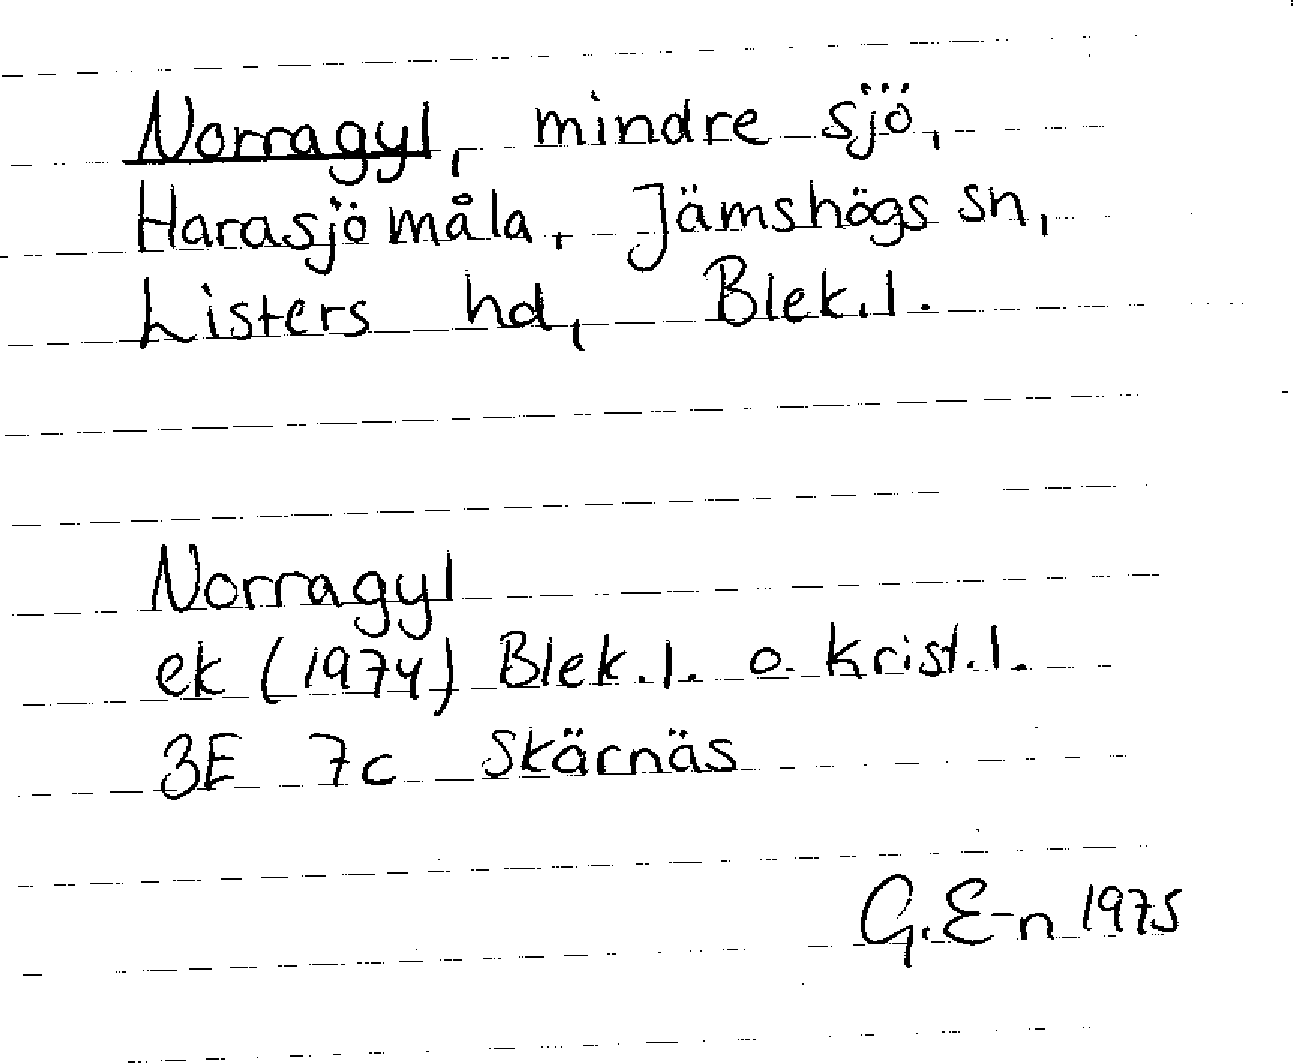 Norragyl, mindre sjö,
Harasjömåla, Jämshögs sn,
Listers hd, Blek.l.
Norragyl
ek (1974) Blek.l. o. Krist.l.
3E 7c Skärnäs
G.E-n 1975